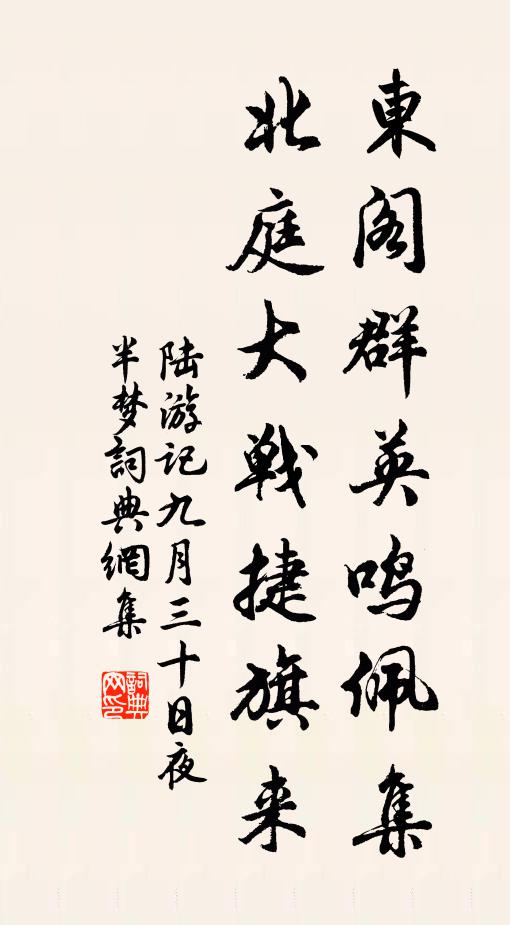 東阁群英鸣佩集
北庭大戦捷旗来
陆游记九月三十日夜
半梦詞典網集
詞典
网印